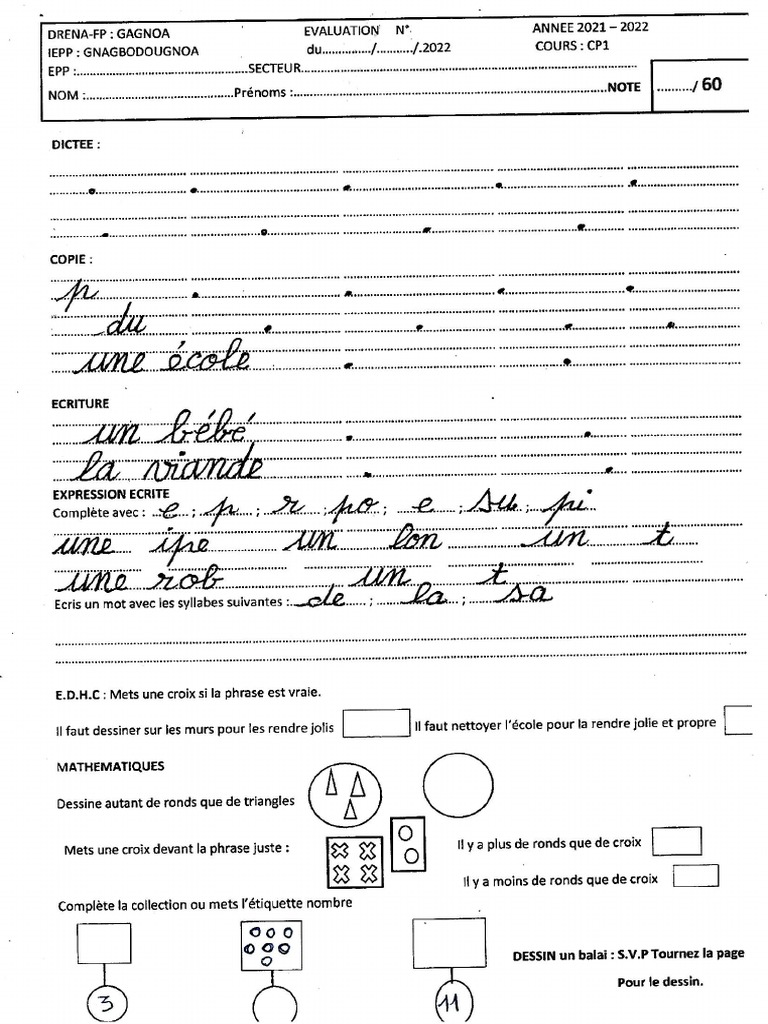 DRENA-FP : GAGNOA EVALUATION N°. ANNEE 2021 – 2022
IEPP : GNAGBODOUGNOA du............../............/.2022 COURS : CP1
EPP :..................................................SECTEUR..................................................
NOM :..........................................Prénoms :..................................................NOTE ........../ 60
DICTEE :
COPIE :
p
du
une école
ECRITURE
un bébé
la viande
EXPRESSION ECRITE
Complète avec : e ; p ; r ; po ; e ; su ; pi
une ipe un lon un t
une rob un t
Ecris un mot avec les syllabes suivantes : de ; la ; sa
E.D.H.C : Mets une croix si la phrase est vraie.
Il faut dessiner sur les murs pour les rendre jolis Il faut nettoyer l'école pour la rendre jolie et propre
MATHEMATIQUES
Dessine autant de ronds que de triangles
Mets une croix devant la phrase juste : Il y a plus de ronds que de croix
Il y a moins de ronds que de croix
Complète la collection ou mets l'étiquette nombre
DESSIN un balai : S.V.P Tournez la page
Pour le dessin.
3 11